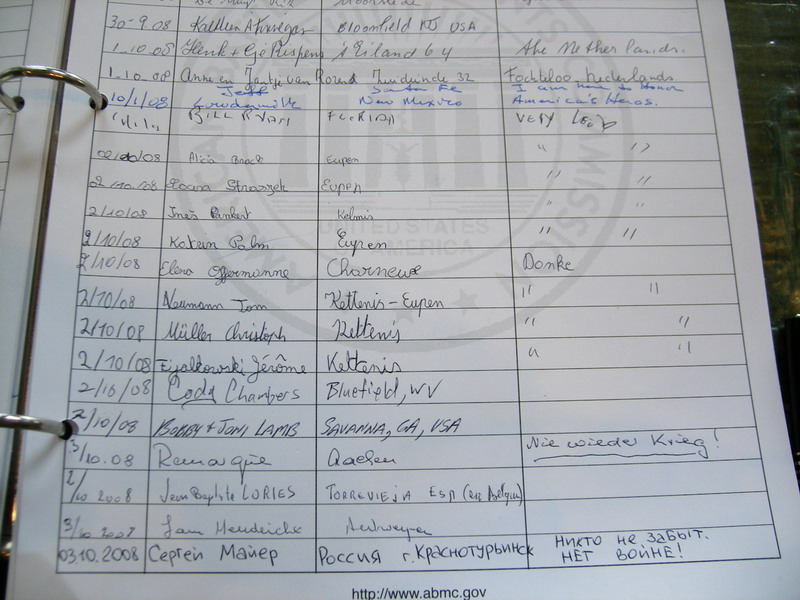 30-9-08 Bloomfield NJ USA
1-10-08 Henk + 's Eiland 64 The Netherlands.
1-10-08 Anne en van 32 Fochteloo. Nederlands.
10/1/08 Jeff Santa Fe I am here to Honor
New Mexico America's Heros.
BILL RYAN FLORIDA VERY
02/10/08 Alicia Eupen " "
02/10/08 Straszek Eupen " "
2/10/08 Ines Pankert Kelmis " "
2/10/08 Katrin Palm Eupen " "
2/10/08 Elena Offermanns Charneux Danke
2/10/08 Neumann Tom Kettenis-Eupen " "
2/10/08 Müller Christoph Kettenis " "
2/10/08 Fijalkowski Jérôme Kettenis " "
2/10/08 Cody Chambers Bluefield, WV
2/10/08 BOBBY & JONI LAMB SAVANNA, GA, USA
3/10.08 Remarque Aachen Nie wieder Krieg!
2/10 2008 Jean Baptiste LORIES TORREVIEJA ESP (ex Belgium)
3/10 2008 Jan Hendrickx Antwerpen
03.10.2008 Сергей Майер Россия г. Краснотурьинск НИКТО НЕ ЗАБЫТ.
НЕТ ВОЙНЕ!
UNITED STATES
OF AMERICA
http://www.abmc.gov